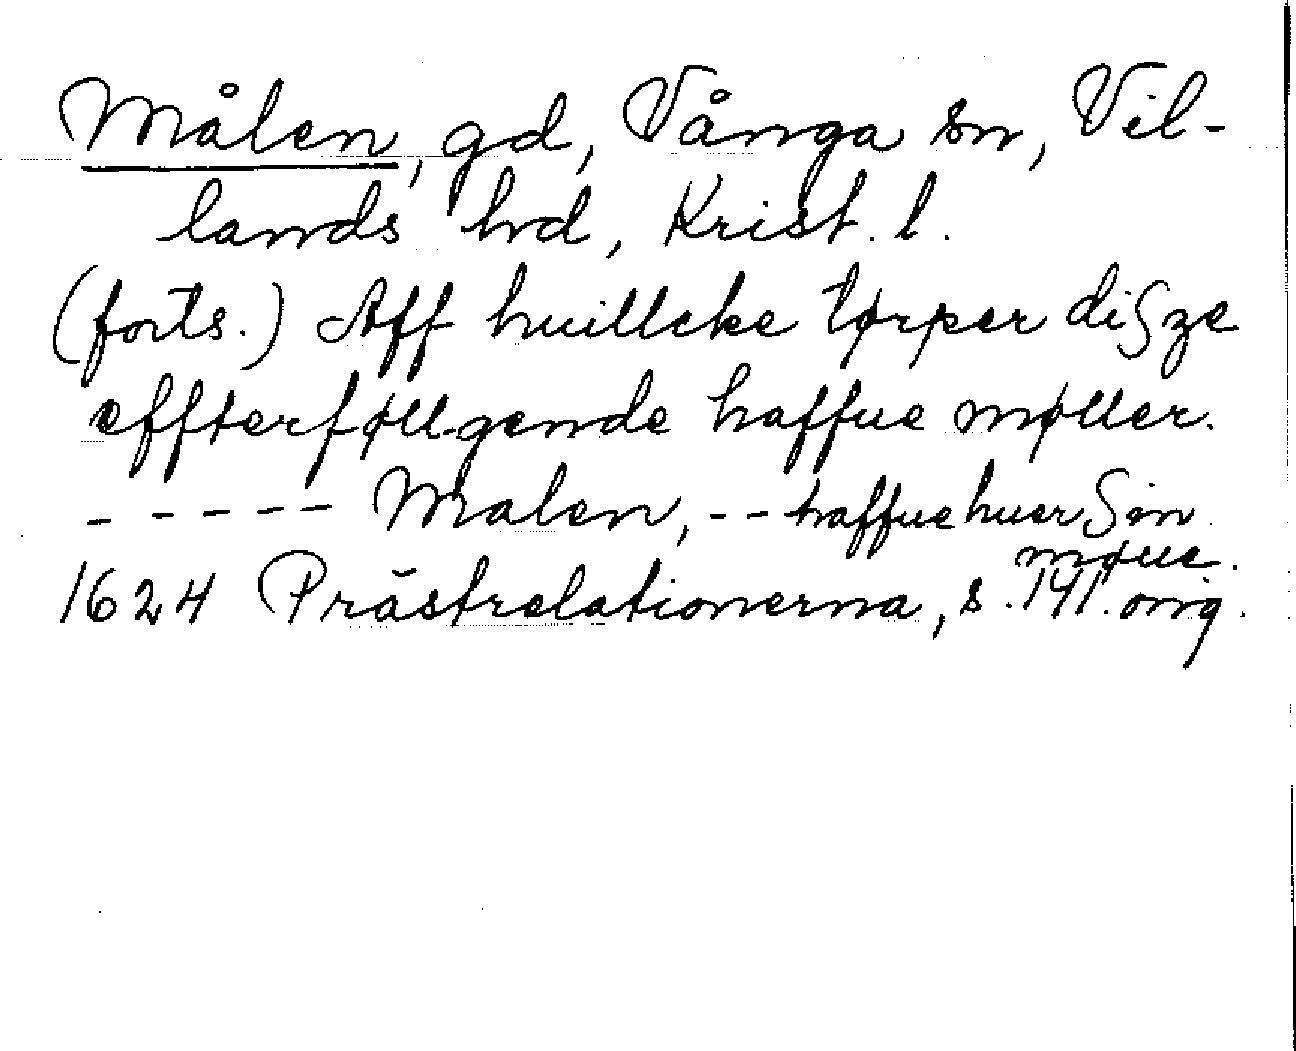 Målen, gd, Vånga sn, Vil-
lands hd, Krist. l.
(forts.) Aff huillcke tørper diſze
effterføllgende haffue møller.
- - - - - Malen, - - haffue huer Sin
mølle.
1624 Prästrelationerna, s. 141. orig.